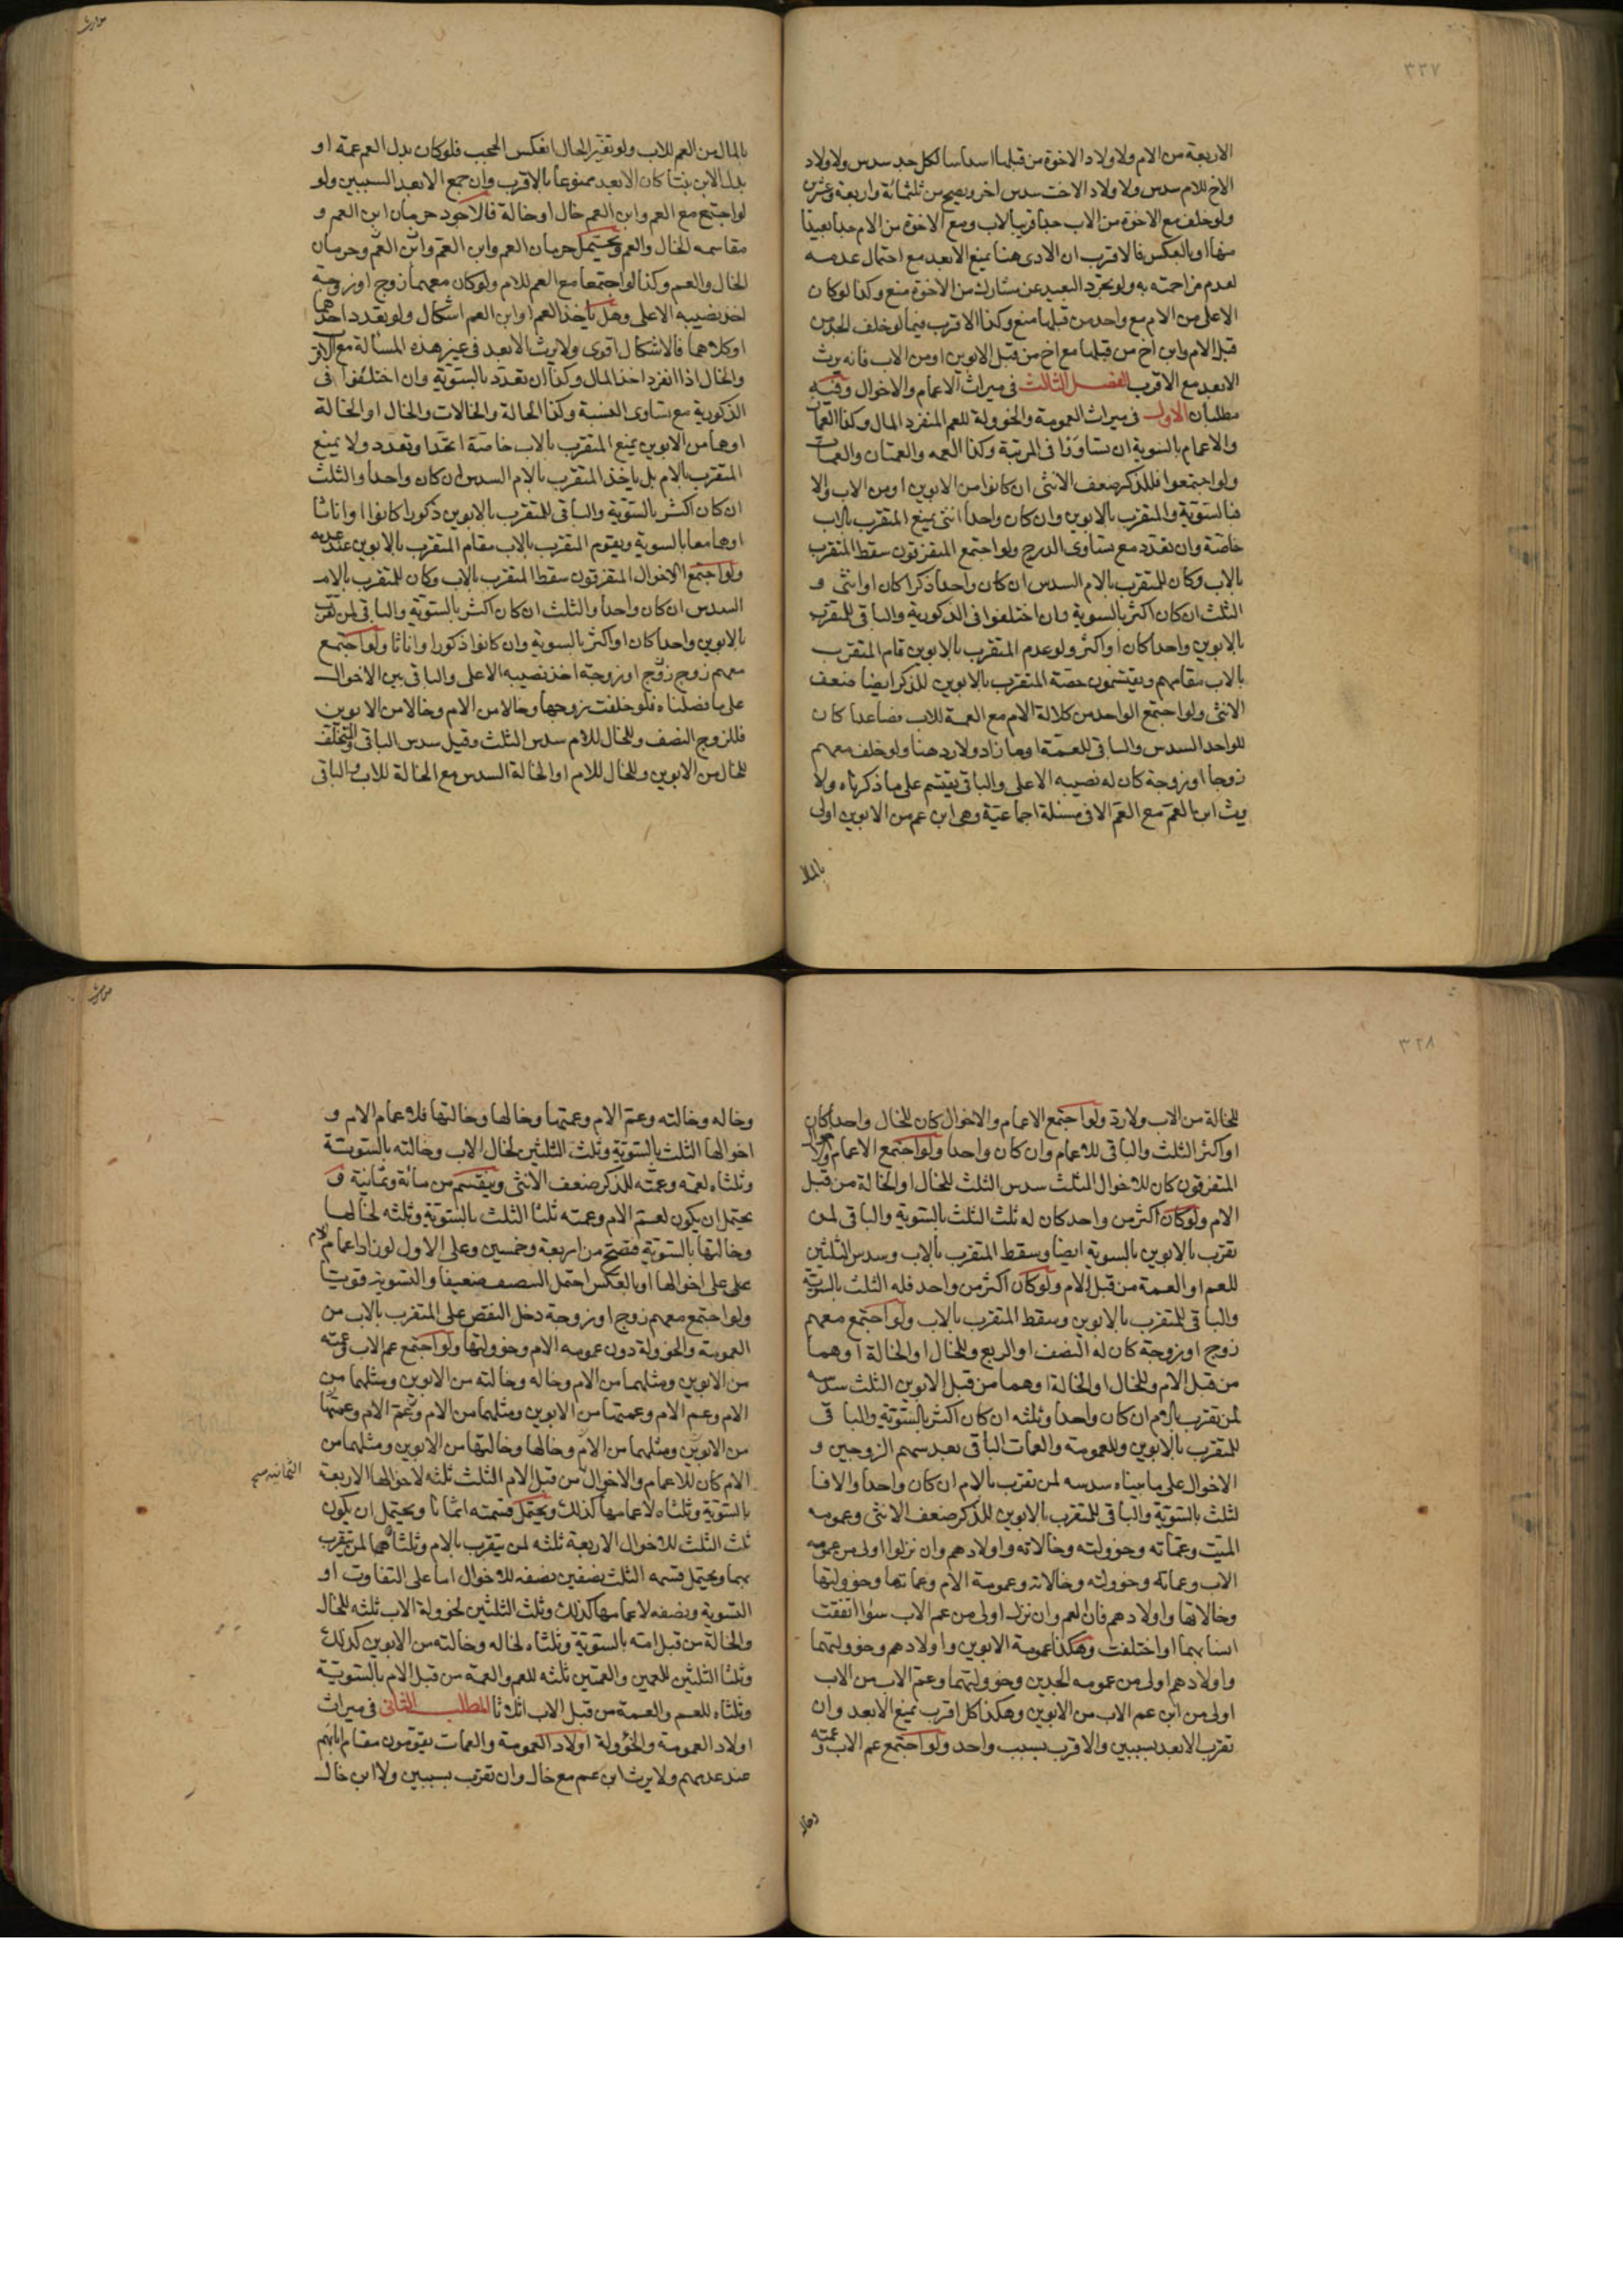 ٣٣٧
الاربعة من الام ولاولاد الاخوة من قبلها اسداسا لكل جد سدس ولاولاد
الاخ للام سدس ولاولاد الاخت سدس اخر ويصح من ثلثمائة واربعة وعشرين
ولو خلف مع الاخوة من الاب جدا قريبا لاب ومع الاخوة من الام جدا بعيدا
منها او بالعكس فالاقرب ان الادنى هنا يمنع الابعد مع احتمال عدمه
لعدم مزاحمته به ولو تجرد البعيد عن مشارك من الاخوة منع وكذا لو كان
الاعلى من الام مع واحد من قبلها منع وكذا الاقرب فيما لو خلف الجد من
قبل الام وابن اخ من قبلها مع اخ من قبل الابوين او من الاب فانه يرث
الابعد مع الاقرب الفصل الثالث في ميراث الاعمام والاخوال وفيه
مطلبان الاول في ميراث العمومة والخوولة للعم المنفرد المال وكذا العمان
والاعمام بالسوية ان تساووا في المرتبة وكذا العمه والعمتان والعمات
ولو اجتمعوا فللذكر ضعف الانثى ان كانوا من الابوين او من الاب والا
فبالسوية والمتقرب بالابوين وان كان واحدا انثى يمنع المتقرب بالاب
خاصة وان تعدد مع تساوي الدرج ولو اجتمع المتفرقون سقط المتقرب
بالاب وكان للمتقرب بالام السدس ان كان واحدا ذكرا كان او انثى و
الثلث ان كان اكثر بالسوية وان اختلفوا في الذكورية والباقي للمتقرب
بالابوين واحدا كان او اكثر ولو عدم المتقرب بالابوين قام المتقرب
بالاب مقامهم ويقتسمون حصة المتقرب بالابوين للذكر ايضا ضعف
الانثى ولو اجتمع الواحد من كلالة الام مع العمة للاب فصاعدا كان
للواحد السدس والباقي للعمة او ما زاد ولا رد هنا ولو خلف معهم
زوجا او زوجة كان له نصيبه الاعلى والباقي يقتسم على ما ذكرناه ولا
يرث ابن العم مع العم الا في مسئلة اجماعية وهي ابن عم من الابوين اولى
بالمال
بالمال من العم للاب ولو تغير الحال انعكس الحجب فلو كان بدل العم عمة او
بدل الابن بنتا كان الابعد ممنوعا بالاقرب وان جمع الابعد السببين ولو
لو اجتمع مع العم وابن العم خال او خالة فالاجود حرمان ابن العم و
مقاسمه الخال والعم ويحتمل حرمان العم وابن العم وابن العم وحرمان
الخال والعم وكذا لو اجتمعا مع العم للام ولو كان معهما زوج او زوجة
اخذ نصيبه الاعلى وهل ياخذ العم او ابن العم اشكال ولو تعدد احدهما
او كلاهما فالاشكال اقوى ولا يرث الابعد في غير هذه المسألة مع الاقرب
والخال اذا انفرد اخذ المال وكذا ان تعدد بالسوية وان اختلفوا في
الذكورية مع تساوى النسبة وكذا الخالة والخالات والخال او الخالة
او هما من الابوين يمنع المتقرب بالاب خاصة اتحد او تعدد ولا يمنع
المتقرب بالام بل ياخذ المتقرب بالام السدس ان كان واحدا والثلث
ان كان اكثر بالسوية والباقي للمتقرب بالابوين ذكورا كانوا او اناثا
او هما معا بالسوية ويقوم المتقرب بالاب مقام المتقرب بالابوين عند عدمه
ولو اجتمع الاخوال المتفرقون سقط المتقرب بالاب وكان للمتقرب بالام
السدس ان كان واحدا والثلث ان كان اكثر بالسوية والباقي لمن تقرب
بالابوين واحدا كان او اكثر بالسوية وان كانوا ذكورا واناثا ولو اجتمع
معهم زوج زوج او زوجة اخذ نصيبه الاعلى والباقي بين الاخوال
على ما فصلناه فلو خلفت زوجها وخالا من الام وخالا من الابوين
فللزوج النصف وللخال للام سدس الثلث وقيل سدس الباقي والتخلف
للخال من الابوين وللخال للام او الخالة السدس مع الخالة للاب والباقي
٣٢٨
للخالة من الاب ولا رد ولو اجتمع الاعمام والاخوال كان للخال واحدا كان
او اكثر الثلث والباقي للاعمام وان كان واحدا ولو اجتمع الاعمام والاخوال
المتفرقون كان للاخوال الثلث سدس الثلث للخال او الخالة من قبل
الام ولو كان اكثر من واحد كان له ثلث الثلث بالسوية والباقي لمن
تقرب بالابوين بالسوية ايضا وسقط المتقرب بالاب وسدس الثلثين
للعم او العمة من قبل الام ولو كان اكثر من واحد فله الثلث بالسوية
والباقي للمتقرب بالابوين وسقط المتقرب بالاب ولو اجتمع معهم
زوج او زوجة كان له النصف او الربع وللخال او الخالة او هما
من قبل الام وللخال او الخالة او هما من قبل الابوين الثلث سدسه
لمن تقرب بالام ان كان واحدا وثلثه ان كان اكثر بالسوية والباقي
للمتقرب بالابوين وللعمومة والعمات الباقي بعد سهم الزوجين و
الاخوال على ما بيناه سدسه لمن تقرب بالام ان كان واحدا والا فا
لثلث بالسوية والباقي للمتقرب بالابوين للذكر ضعف الانثى وعمومه
الميت وعماته وخوولته وخالاته واولادهم وان نزلوا اولى من عمومه
الاب وعماته وخوولته وخالاته وعمومة الام وعماتها وخوولتها
وخالاتها واولادهم فابن العم وان نزل اولى من عم الاب سواء اتفقت
اسبابهما او اختلفت وهكذا عمومة الابوين واولادهم وخوولتهما
واولادهم اولى من عمومه الجدين وخوولتهما وعم الاب من الاب
اولى من ابن عم الاب من الابوين وهكذا كل اقرب يمنع الابعد وان
تقرب الابعد بسببين والاقرب بسبب واحد ولو اجتمع عم الاب وعمته
وخاله
وخاله وخالته وعم الام وعمتها وخالها وخالتها فلاعمام الام و
اخوالها الثلث بالسوية وثلث الثلثين لخال الاب وخالته بالسوية
وثلثاه لعمه وعمته للذكر ضعف الانثى وينقسم من مائة وثمانية و
يحتمل ان يكون لعم الام وعمته ثلثا الثلث بالسوية وثلثه لخالها
وخالتها بالسوية فتصح من اربعة وخمسين وعلى الاول لو زاد اعمام الام
على على اخوالها او بالعكس احتمل النصف ضعيفا والتسوية قويتا
ولو اجتمع معهم زوج او زوجة دخل النقص على المتقرب بالاب من
العمومة والخوولة دون عمومه الام وخوولتها ولو اجتمع عم الاب وعمته
من الابوين ومثلهما من الام وخاله وخالته من الابوين ومثلهما من
الام وعم الام وعمتها من الابوين ومثلهما من الام وعم الام وعمتها
من الابوين ومثلهما من الام وخالها وخالتها من الابوين ومثلهما من
الام كان للاعمام والاخوال من قبل الام الثلث ثلثه لاخوالها الاربعة
الثمانية صح
بالسوية وثلثاه لاعمامها كذلك ويحتمل قسمته اثمانا ويحتمل ان يكون
ثلث الثلث للاخوال الاربعة ثلثه لمن يتقرب بالام وثلثاه لمن يتقرب
بهما ويحتمل قسمه الثلث نصفين نصفه للاخوال اما على التفاوت او
التسوية ونصفه لاعمامها كذلك وثلث الثلثين لخوولة الاب ثلثه للخال
والخالة من قبل امه بالسوية وثلثاه لخاله وخالته من الابوين كذلك
وثلثا الثلثين للعمين والعمتين ثلثه للعم والعمة من قبل الام بالسوية
وثلثاه للعم والعمة من قبل الاب اثلاثا المطلب الثاني في ميراث
اولاد العمومة والخؤولة اولاد العمومة والعمات يقومون مقام ابائهم
عند عدمهم ولا يرث ابن عم مع خال وان تقرب بسببين ولا ابن خال